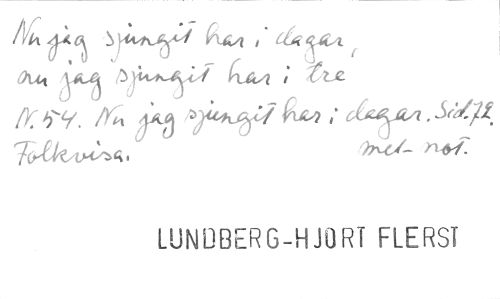 Nu jag sjungit har i dagar,
nu jag sjungit har i tre
N.54. Nu jag sjungit har i dagar. Sid.72.
Folkvisa. met- not.
LUNDBERG-HJORT FLERST